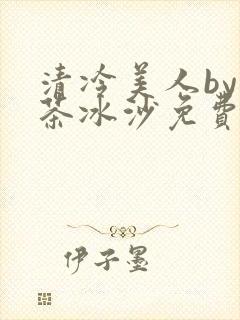 清冷美人by
茶冰沙免費
伊子墨